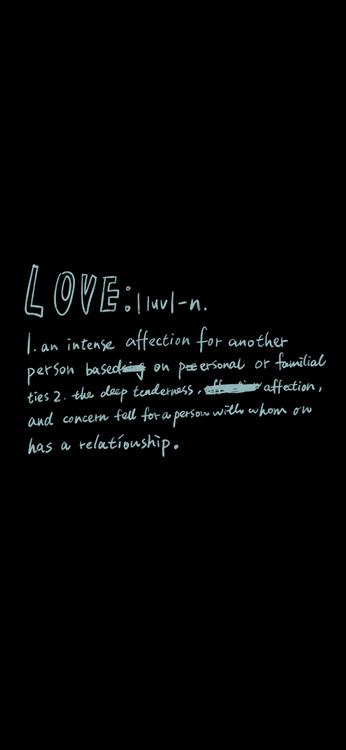 LOVE: |luv|-n.
1. an intense affection for another
person based on personal or familial
ties 2. the deep tenderness, affection,
and concern fell for a person with whom on
has a relationship.